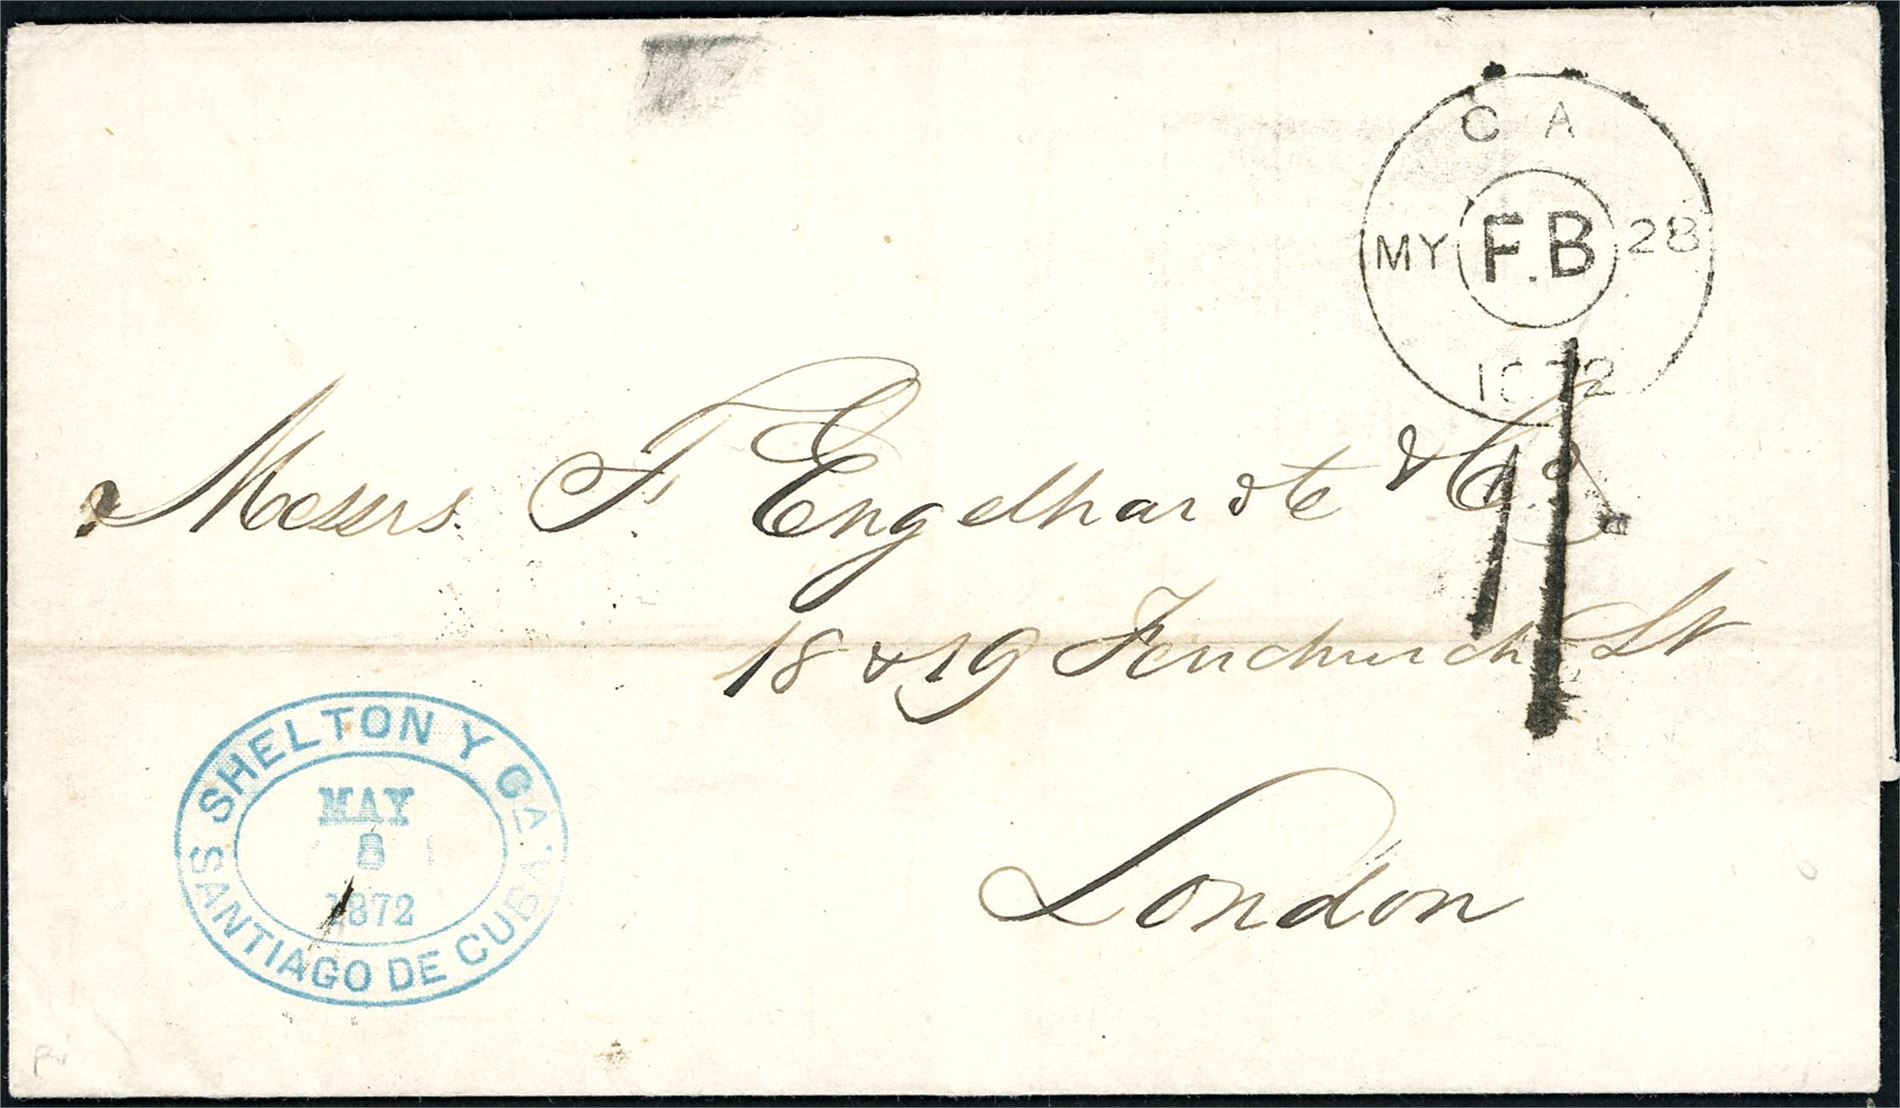 C A
MY F.B 28
1872
Messrs F. Engelhardte & Co
18 & 19 Fenchurch St
London
SHELTON Y CA
MAY
8
1872
SANTIAGO DE CUBA